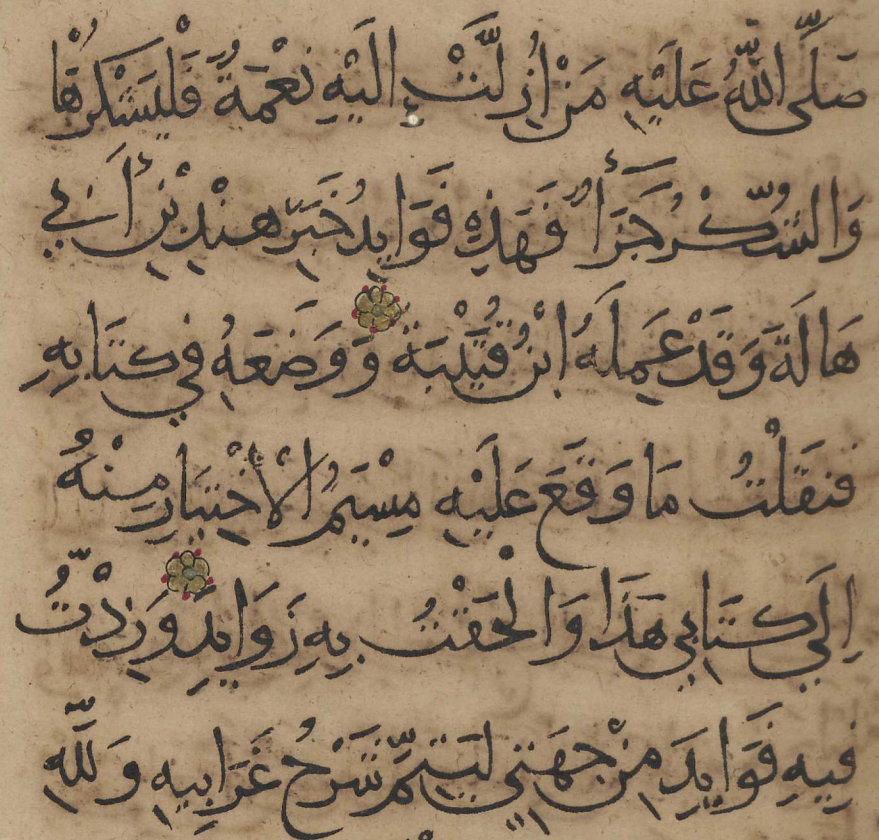 صَلَّى اللّٰهُ عَلَيْهِ مَنْ اُزِلَّتْ اِلَيْهِ نِعْمَةٌ فَلْيَشْكُرْهَا
وَالشُّكْرُ جَزَأٌ فَهَذِهِ فَوَايِدُ خَبَرِ هِنْدِ بْنِ أَبِي
هَالَةَ وَقَدْ عَمِلَهُ ابْنُ قُتَيْبَةَ وَوَضَعَهُ في كِتَابِهِ
فنَقَلْتُ مَا وَقَعَ عَلَيْهِ مِيْسَمُ الْاخْتِيَارِ مِنْهُ
اِلَي كِتَابِي هَذَا وَالْحَقْتُ بِهِ زَوَايِدَ وَزِدْتُ
فِيهِ فَوَايِدَ مِنْ جِهَتِي لِيَتِمَّ شَرْحُ غَرَايِبِهِ وَلِلّٰهِ